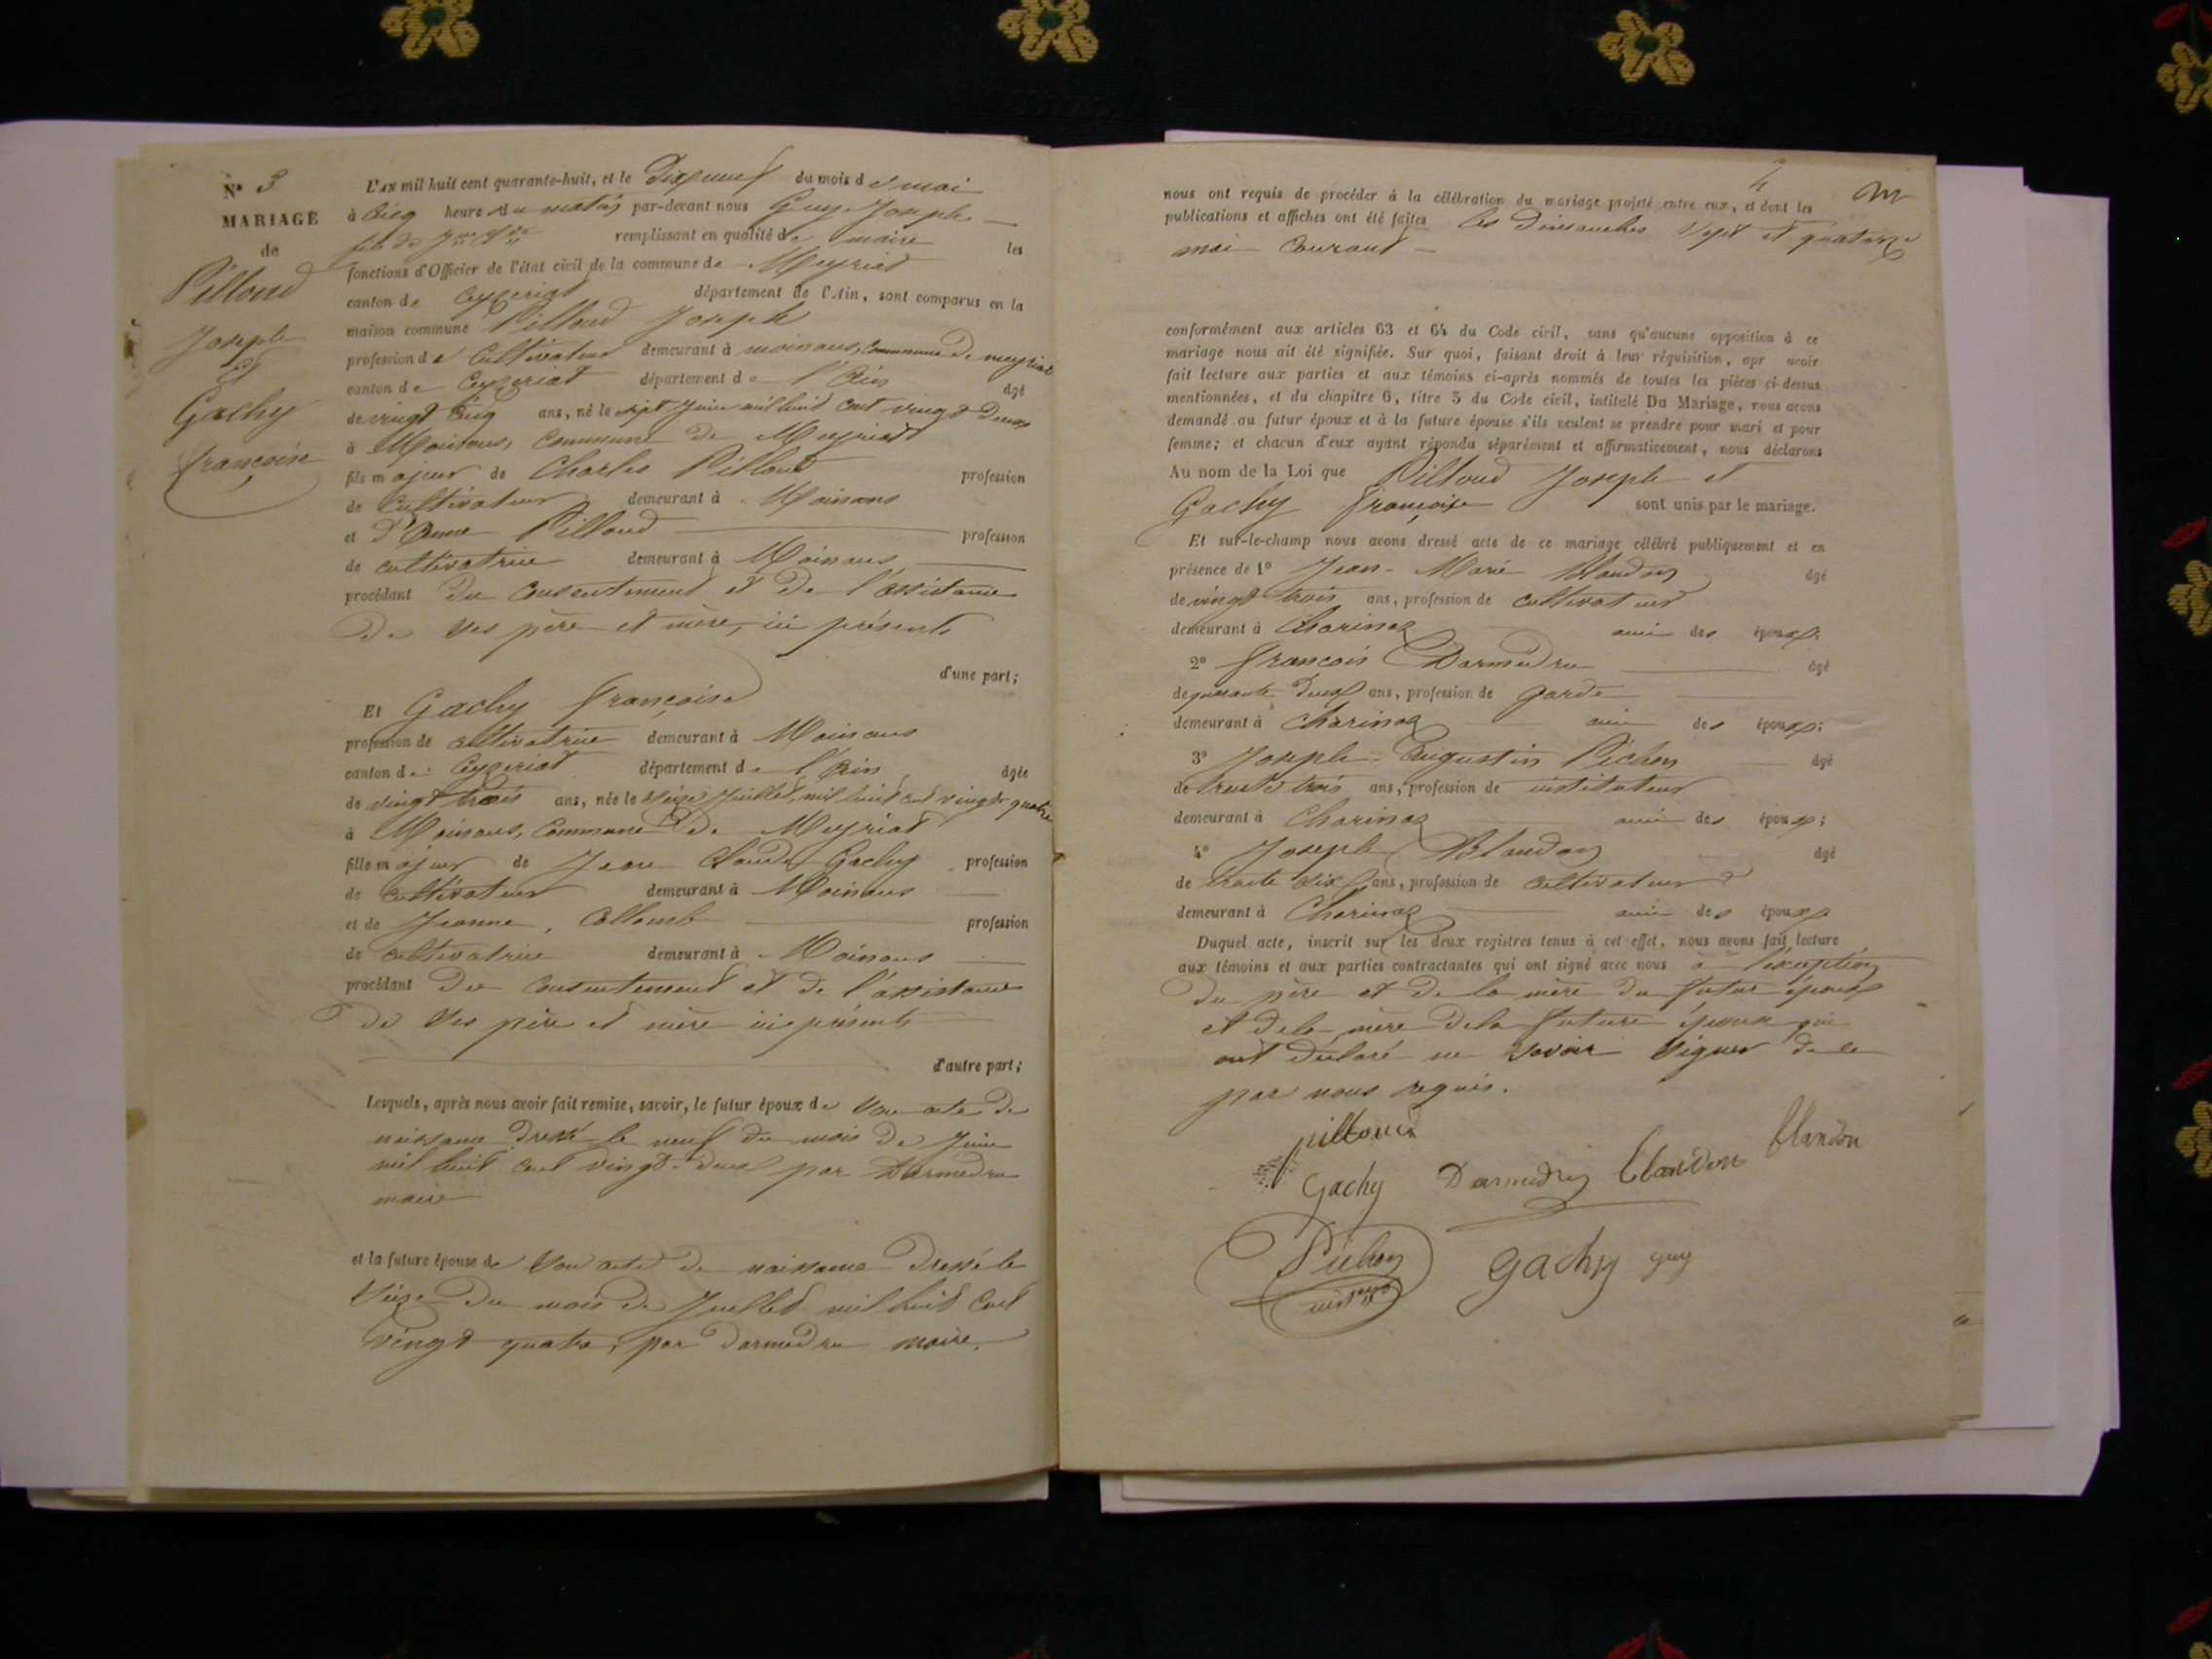 N° 3
MARIAGE
de
Pilloud
Joseph
et
Gachy
françoise
L'AN mil huit cent quarante-huit, et le dix neuf du mois de mai
à cinq heures du matin par-devant nous Guy Joseph
fils de remplissant en qualité de maire les
fonctions d'Officier de l'état civil de la commune de Meyriat
canton de Ceyzeriat département de l'Ain, sont comparus en la
maison commune Pilloud Joseph
profession de Cultivateur demeurant à moinans, Commune de meyriat
canton de Ceyzeriat département de l'Ain âgé
de vingt cinq ans, né le sept Juin mil huit cent vingt deux
à Moinans, Commune de Meyriat
fils majeur de Charles Pilloud profession
de Cultivateur demeurant à Moinans
et d'Anne Pilloud profession
de cultivatrice demeurant à Moinans
procédant du consentement et de l'assistance
de ses père et mère, ici présents
d'une part;
Et Gachy françoise
profession de cultivatrice demeurant à Moinans
canton de Ceyzeriat département de l'Ain âgée
de vingt trois ans, née le seize Juillet, mil huit cent vingt quatre
à Moinans, Commune de Meyriat
fille majeur de Jean Claude Gachy profession
de cultivateur demeurant à Moinans
et de Jeanne, Collomb profession
de cultivatrice demeurant à Moinans
procédant du consentement et de l'assistance
de ses père et mère ici présents
d'autre part;
Lesquels, après nous avoir fait remise, savoir, le futur époux de son acte de
naissance dressé le neuf du mois de Juin
mil huit cent vingt-deux par Darmedru
maire
et la future épouse de son acte de naissance dressé le
seize du mois de Juillet mil huit cent
vingt quatre, par Darmedru maire,
nous ont requis de procéder à la célébration du mariage projeté entre eux, et dont les
publications et affiches ont été faites les dimanches sept et quatorze
mai courant
conformément aux articles 63 et 64 du Code civil, sans qu'aucune opposition à ce
mariage nous ait été signifiée. Sur quoi, faisant droit à leur réquisition, apr avoir
fait lecture aux parties et aux témoins ci-après nommés de toutes les pièces ci-dessus
mentionnées, et du chapitre 6, titre 5 du Code civil, intitulé Du Mariage, nous avons
demandé au futur époux et à la future épouse s'ils veulent se prendre pour mari et pour
femme; et chacun d'eux ayant répondu séparément et affirmativement, nous déclarons
Au nom de la Loi que Pilloud Joseph et
Gachy françoise sont unis par le mariage.
Et sur-le-champ nous avons dressé acte de ce mariage célébré publiquement et en
présence de 1° Jean-Marie Blandon âgé
de vingt trois ans, profession de cultivateur
demeurant à Charinaz ami des époux;
2° françois Darmedru âgé
de quarante deux ans, profession de garde
demeurant à Charinaz ami des époux;
3° Joseph-Augustin Pichon âgé
de trente trois ans, profession de instituteur
demeurant à Charinaz ami des époux;
4° Joseph Blandon âgé
de trente six ans, profession de cultivateur
demeurant à Charinaz ami des époux
Duquel acte, inscrit sur les deux registres tenus à cet effet, nous avons fait lecture
aux témoins et aux parties contractantes qui ont signé avec nous à l'exception
du père et de la mère du futur époux
et de la mère de la future épouse qui
ont déclaré ne savoir signer de ce
par nous requis.
pilloud
Gachy Darmedru blandon blandon
Pichon
gachy guy